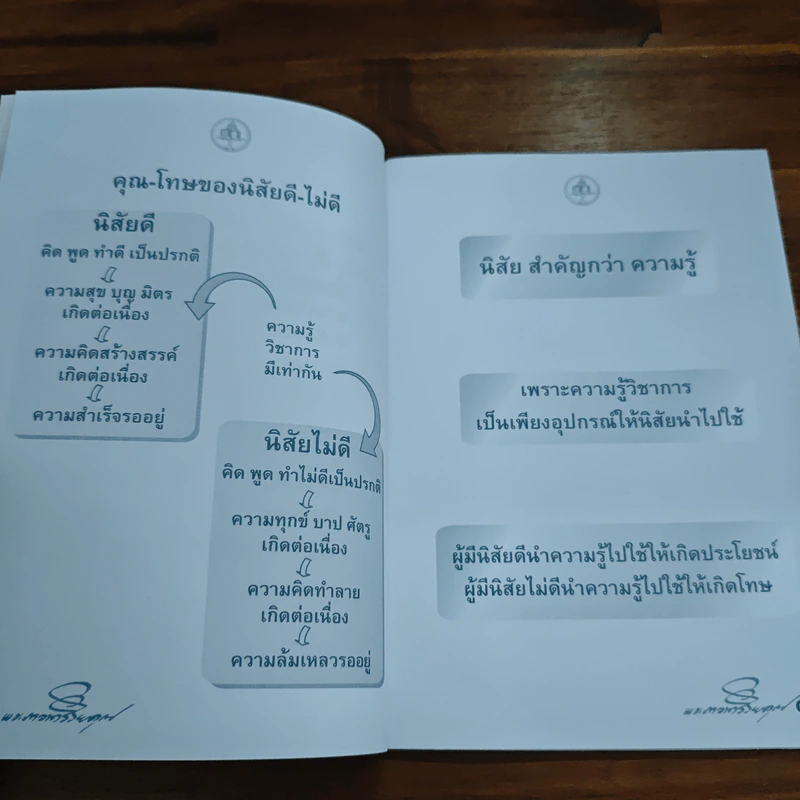 คุณ-โทษของนิสัยดี-ไม่ดี
นิสัยดี
คิด พูด ทำดี เป็นปรกติ
ความสุข บุญ มิตร
เกิดต่อเนื่อง
ความคิดสร้างสรรค์
เกิดต่อเนื่อง
ความสำเร็จรออยู่
ความรู้
วิชาการ
มีเท่ากัน
นิสัยไม่ดี
คิด พูด ทำไม่ดีเป็นปรกติ
ความทุกข์ บาป ศัตรู
เกิดต่อเนื่อง
ความคิดทำลาย
เกิดต่อเนื่อง
ความล้มเหลวรออยู่
นิสัย สำคัญกว่า ความรู้
เพราะความรู้วิชาการ
เป็นเพียงอุปกรณ์ให้นิสัยนำไปใช้
ผู้มีนิสัยดีนำความรู้ไปใช้ให้เกิดประโยชน์
ผู้มีนิสัยไม่ดีนำความรู้ไปใช้ให้เกิดโทษ